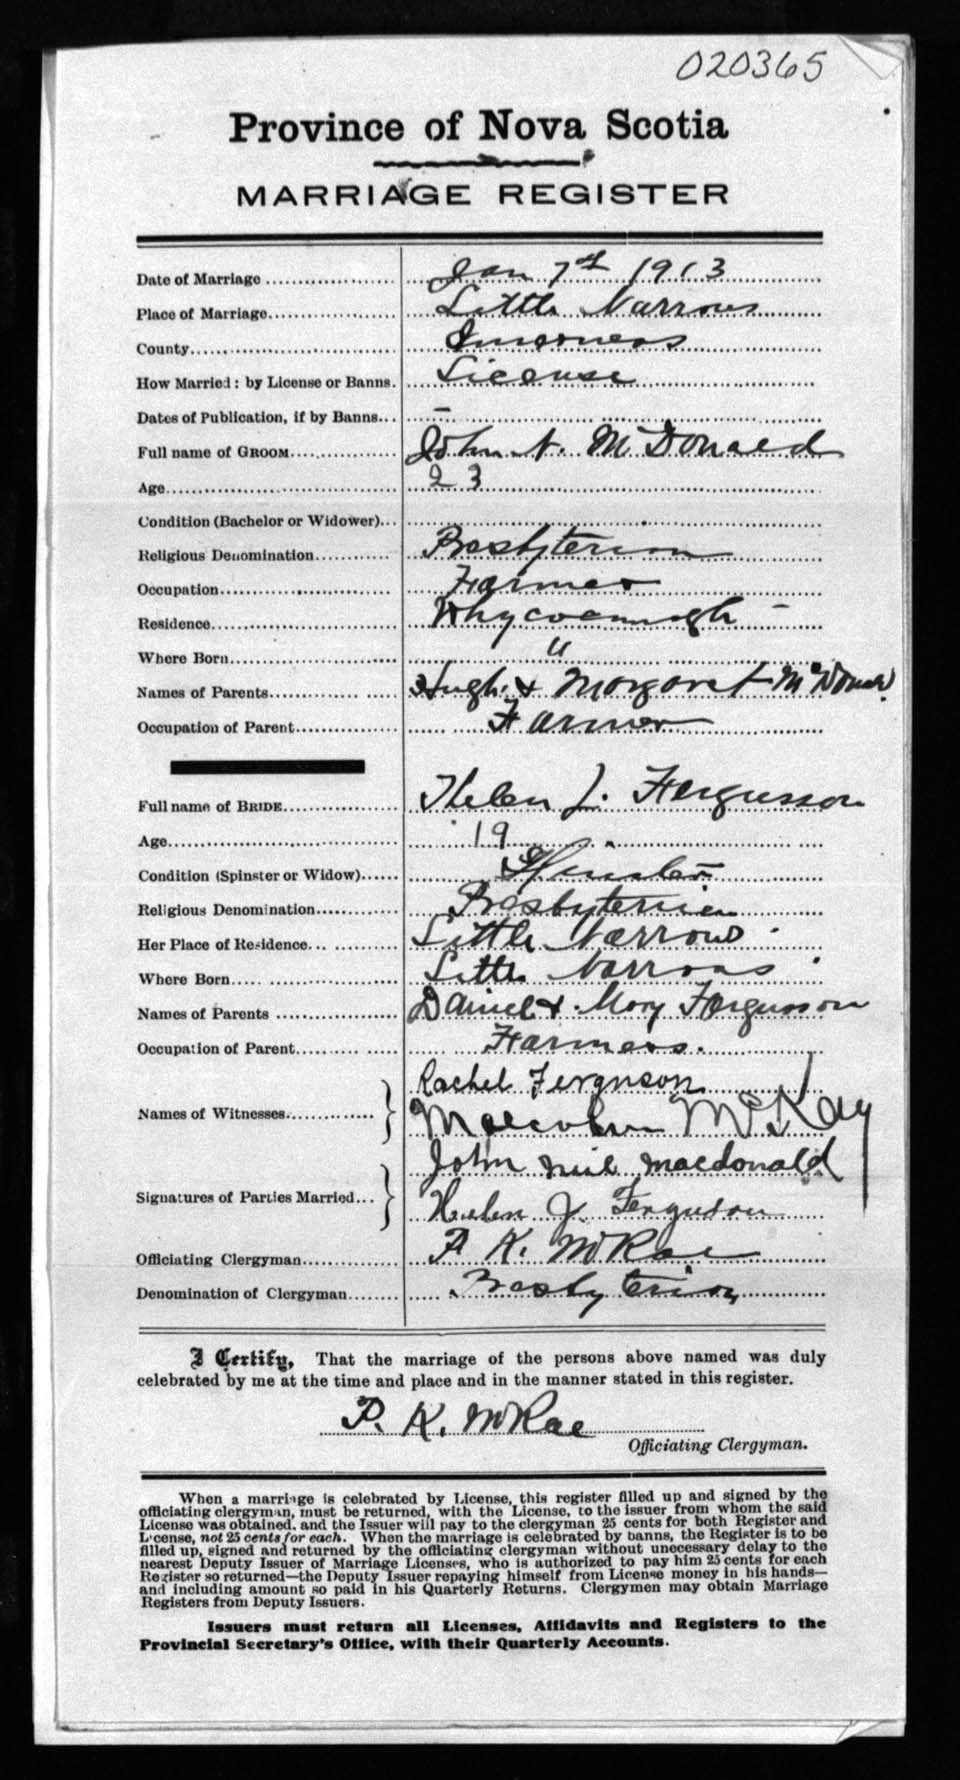 020365
Province of Nova Scotia
MARRIAGE REGISTER
Date of Marriage Jan 7th 1913
Place of Marriage Little Narrows
County Inverness
How Married: by License or Banns. License
Dates of Publication, if by Banns... –
Full name of GROOM John N. McDonald
Age 23
Condition (Bachelor or Widower)...
Religious Denomination Presbyterian
Occupation Farmer
Residence Whycocomagh –
Where Born "
Names of Parents Hugh & Margaret McDonald
Occupation of Parent Farmer
Full name of BRIDE Helen J. Fergusson
Age 19
Condition (Spinster or Widow) Spinster
Religious Denomination Presbyterian
Her Place of Residence Little Narrows
Where Born Little Narrows
Names of Parents Daniel & Mary Fergusson
Occupation of Parent Farmers.
Rachel Ferguson
Names of Witnesses Malcolm McKay
John Neil Macdonald
Signatures of Parties Married... Helen J. Ferguson
Officiating Clergyman P. K. McRae
Denomination of Clergyman Presbyterian
I Certify, That the marriage of the persons above named was duly
celebrated by me at the time and place and in the manner stated in this register.
P. K. McRae
Officiating Clergyman.
When a marriage is celebrated by License, this register filled up and signed by the
officiating clergyman, must be returned, with the License, to the issuer from whom the said
License was obtained, and the Issuer will pay to the clergyman 25 cents for both Register and
License, not 25 cents for each. When the marriage is celebrated by banns, the Register is to be
filled up, signed and returned by the officiating clergyman without unnecessary delay to the
nearest Deputy Issuer of Marriage Licenses, who is authorized to pay him 25 cents for each
Register so returned—the Deputy Issuer repaying himself from License money in his hands—
and including amount so paid in his Quarterly Returns. Clergymen may obtain Marriage
Registers from Deputy Issuers.
Issuers must return all Licenses, Affidavits and Registers to the
Provincial Secretary's Office, with their Quarterly Accounts.